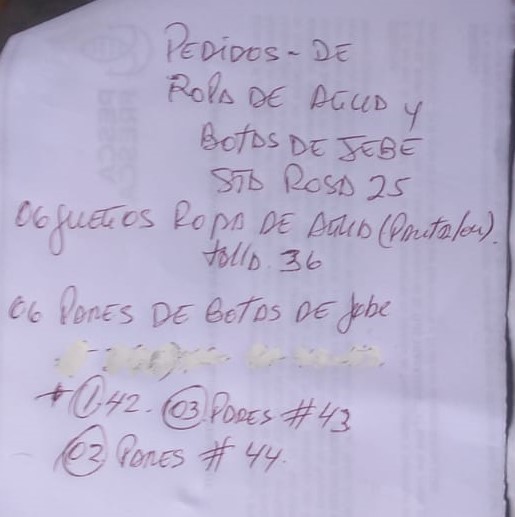 PEDIDOS - DE
ROPA DE AGUA Y
BOTAS DE JEBE
STA ROSA 25
06 JUEGOS ROPA DE AGUA (Pantalon).
talla. 36
06 PARES DE BOTAS DE Jebe
* 1 42. 03 PARES #43
02 PARES # 44.
PESCA
FRESCA